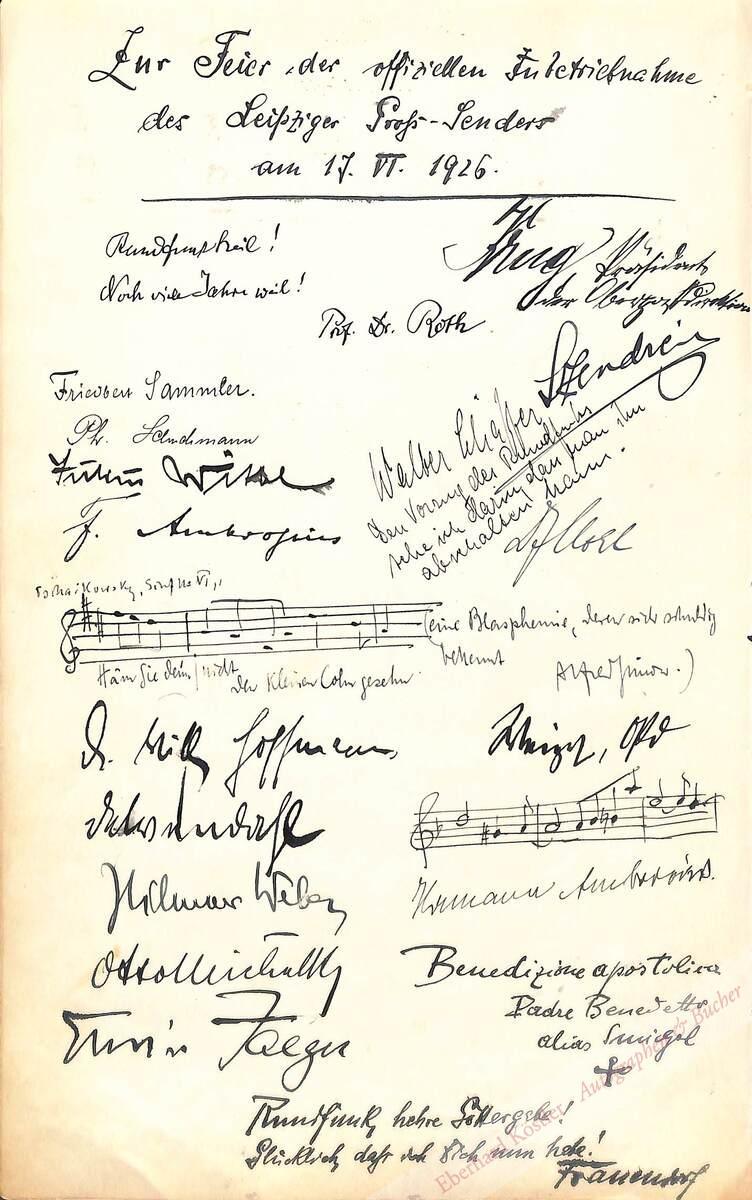 Zur Feier der offiziellen Inbetriebnahme
des Leipziger Gross-Senders
am 17. VI. 1926.
Rundfunkheil!
Noch viele Jahre weil!
Prof. Dr. Roth
Krug Präsident
der Oberpostdirektion
Szendrei
Friedbert Sammler.
Walter Schäffer
Den Vorzug des Rundfunks
sehe ich darin, dass man ihn
abschalten kann.
F. Ambrosius
Tschaikowsky, Sinfonie VI,
Ham Sie denn nicht den kleinen Cohn gesehn.
(eine Blasphemie, deren sich schuldig
bekennt
Alfred Simon.)
Dr. Willy Hoffmann
Hilmar Weber
Hermann Ambrosius.
Erwin Jaeger
Benedizione apostolica
Padre Benedetto
alias Smigel
Rundfunk, hehre Göttergabe!
Glücklich, dass ich Dich nun habe!
Frauendorf
Eberhard Köstler Autographen & Bücher